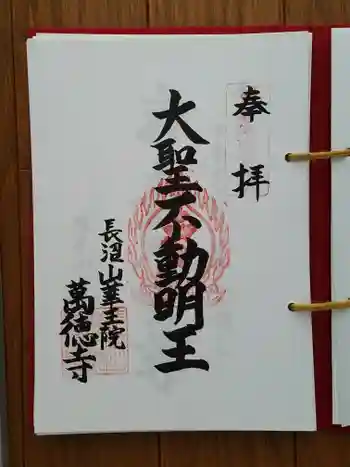 奉拝
大聖不動明王
長沼山華王院
萬徳寺